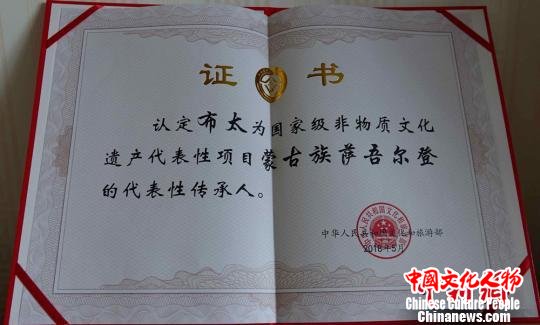 证 书
认定布太为国家级非物质文化
遗产代表性项目蒙古族萨吾尔登
的代表性传承人。
中华人民共和国文化和旅游部
2018年5月
中国文化人物
Chinese Culture Figures
Chinanews.com